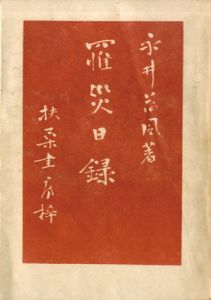 永井荷風著
罹災日録
扶桑書房梓